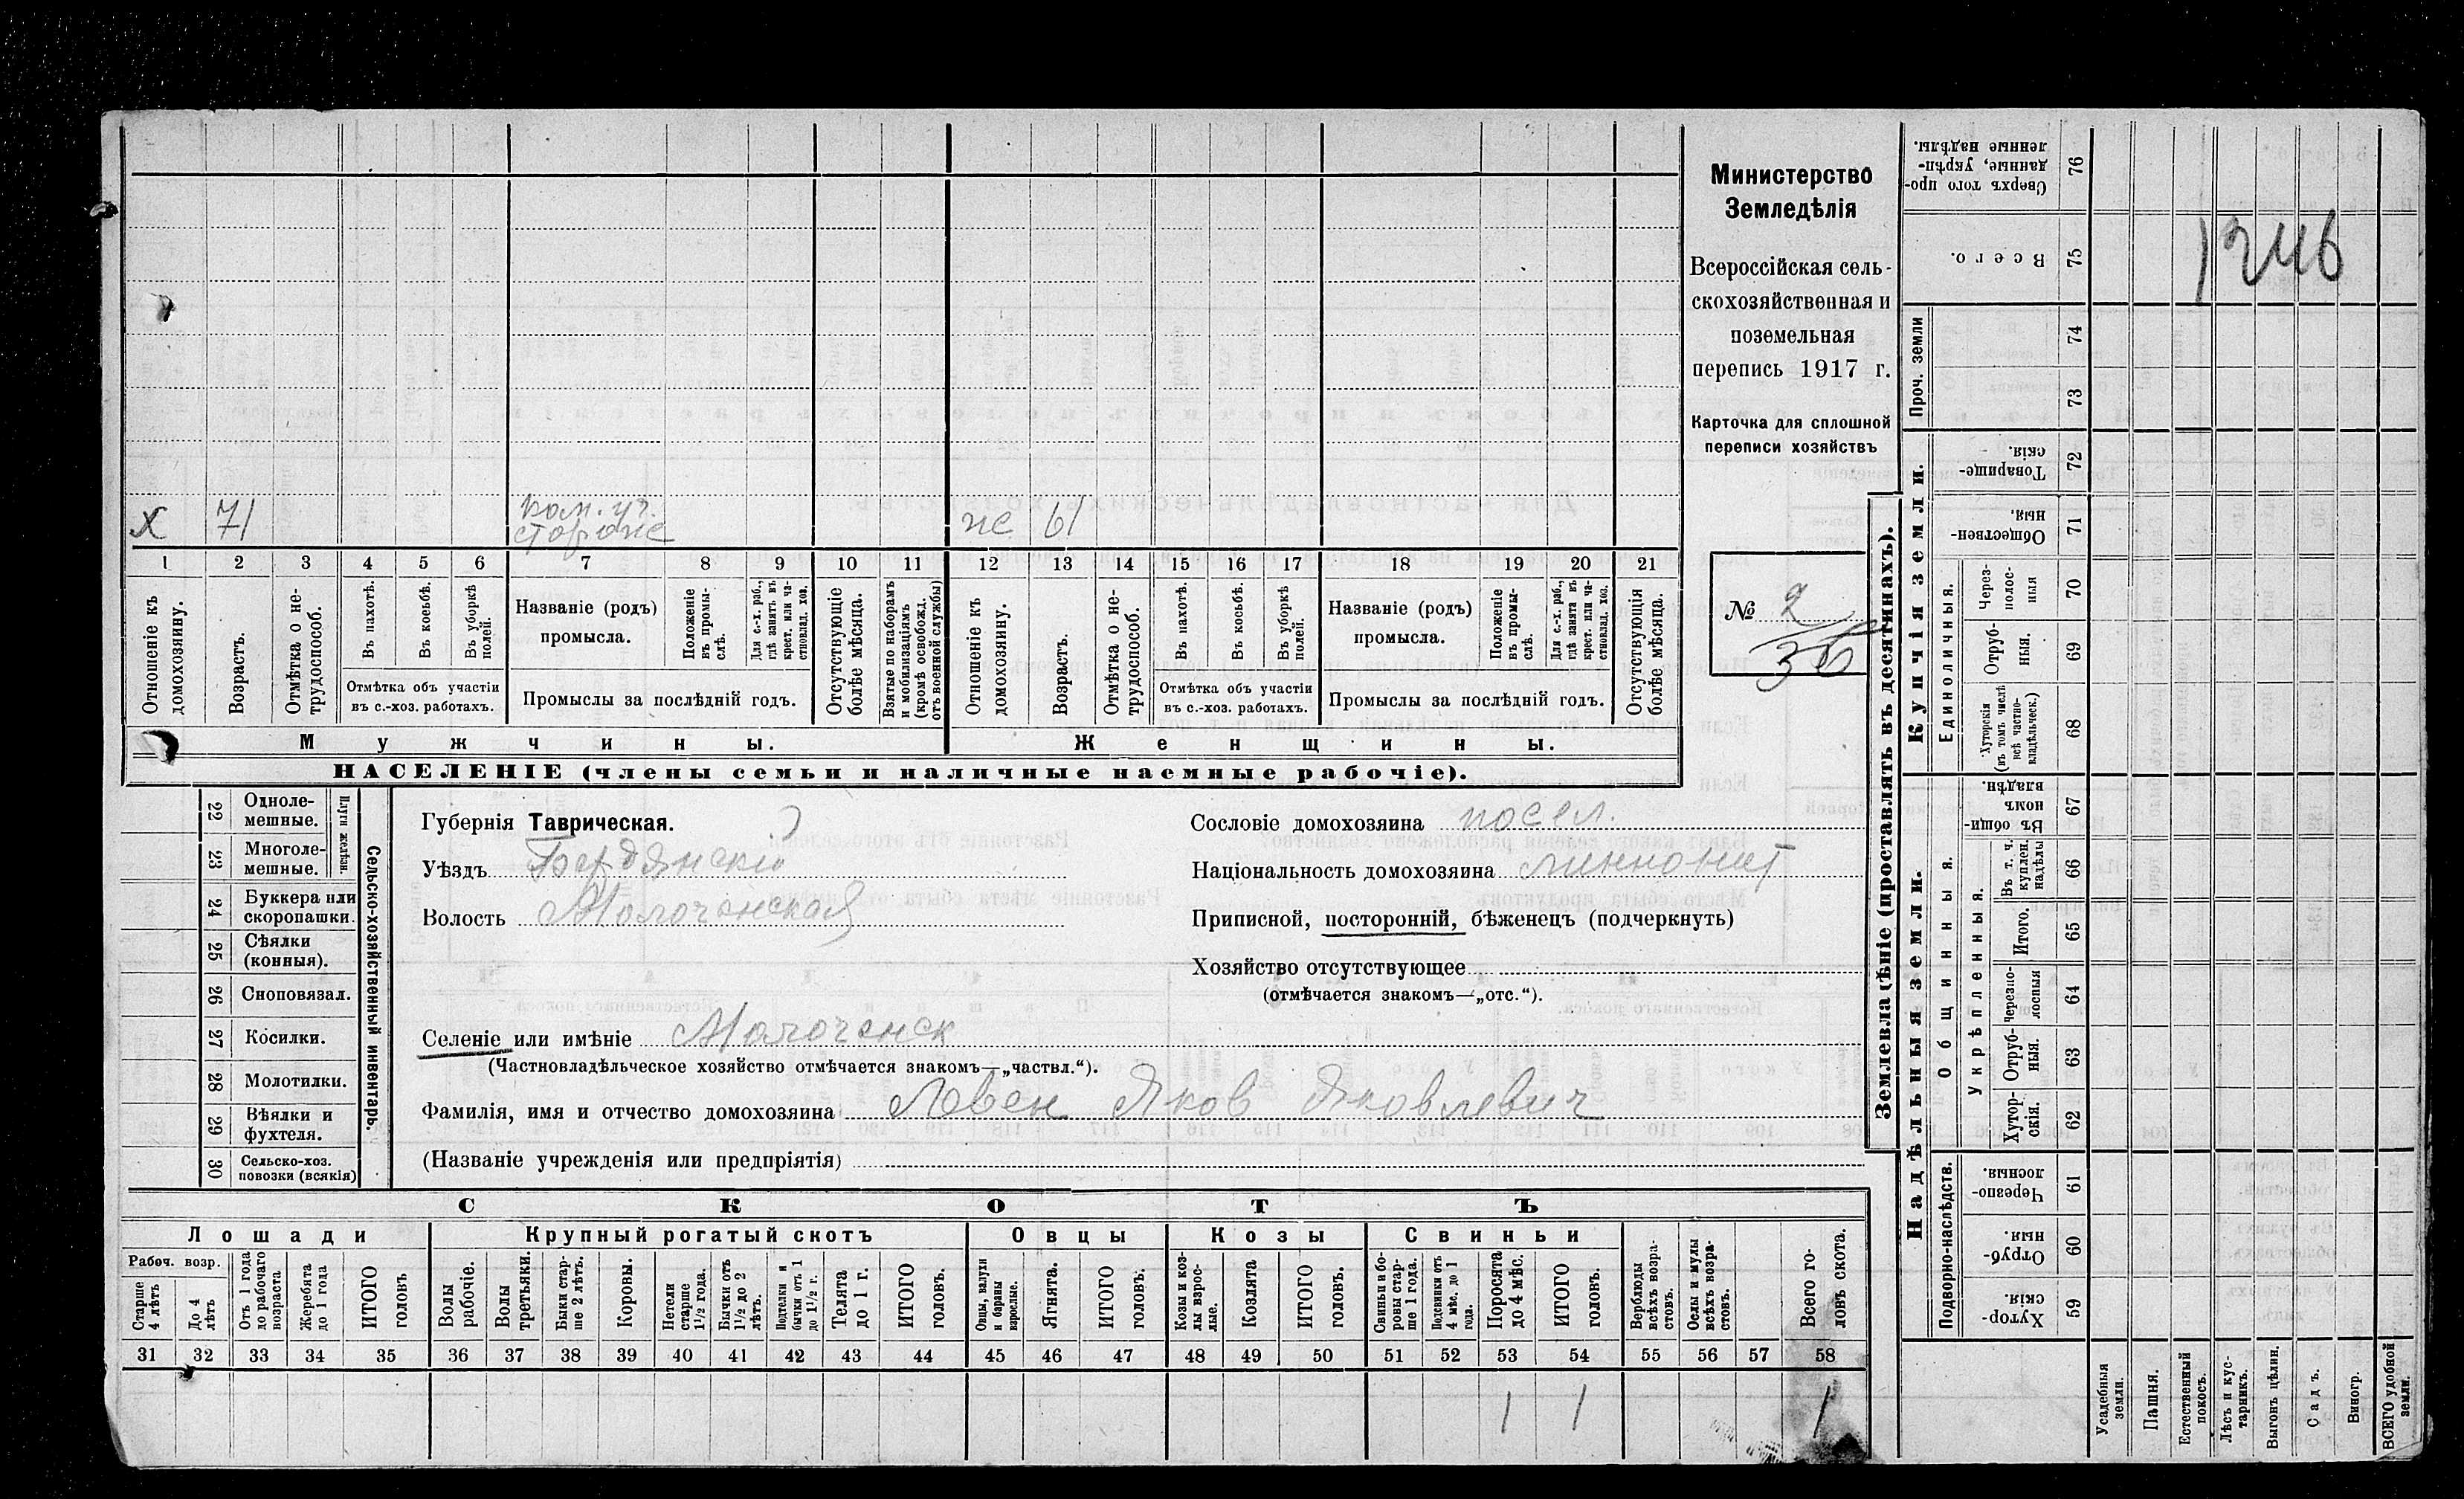 Министерство
Земледѣлія
Всероссійская сель-
скохозяйственная и
поземельная
перепись 1917 г.
Карточка для сплошной
переписи хозяйствъ
№ 2
36
1246
х 71
сторож
же 61
1 2 3 4 5 6 7 8 9 10 11 12 13 14 15 16 17 18 19 20 21
Отношеніе къ
домохозяину.
Возрастъ.
Отмѣтка о не-
трудоспособ.
Въ пахотѣ.
Въ косьбѣ.
Въ уборкѣ
полей.
Отмѣтка объ участіи
въ с.-хоз. работахъ.
Названіе (родъ)
промысла.
Положеніе
въ промы-
слѣ.
Для с.-х. раб.,
гдѣ занятъ въ
крест. или ча-
стновлад. хоз.
Промыслы за послѣдній годъ.
Отсутствующіе
болѣе мѣсяца.
Взятые по наборамъ
и мобилизаціямъ
(кромѣ освобожд.
отъ военной службы)
Отношеніе къ
домохозяину.
Возрастъ.
Отмѣтка о не-
трудоспособ.
Въ пахотѣ.
Въ косьбѣ.
Въ уборкѣ
полей.
Отмѣтка объ участіи
въ с.-хоз. работахъ.
Названіе (родъ)
промысла.
Положеніе
въ промы-
слѣ.
Для с.-х. раб.,
гдѣ занята въ
крест. или ча-
стновлад. хоз.
Промыслы за послѣдній годъ.
Отсутствующія
болѣе мѣсяца.
Мужчины.
Женщины.
НАСЕЛЕНІЕ (члены семьи и наличные наемные рабочіе).
22 Одноле-
мешные.
23 Многоле-
мешные.
Плуги желѣзн.
24 Буккера или
скоропашки.
25 Сѣялки
(конныя).
26 Сноповязал.
27 Косилки.
28 Молотилки.
29 Вѣялки и
фухтеля.
30 Сельско-хоз.
повозки (всякія)
Сельско-хозяйственный инвентарь.
Губернія Таврическая.
Уѣздъ Бердянски
Волость Молочанская
Сословіе домохозяина посел.
Національность домохозяина минонит
Приписной, посторонній, бѣженецъ (подчеркнуть)
Хозяйство отсутствующее
(отмѣчается знакомъ—„отс.“).
Селеніе или имѣніе Молочанск
(Частновладѣльческое хозяйство отмѣчается знакомъ—„частвл.“).
Фамилія, имя и отчество домохозяина Левен Яков Яковлевич
(Названіе учрежденія или предпріятія)
СКОТЪ
Лошади
Крупный рогатый скотъ
Овцы
Козы
Свиньи
Рабоч. возр.
Старше
4 лѣтъ
До 4
лѣтъ
Отъ 1 года
до рабочаго
возраста
Жеребята
до 1 года
ИТОГО
головъ
Волы
рабочіе.
Волы
третьяки.
Быки стар-
ше 2 лѣтъ.
Коровы.
Нетели
старше
1½ года.
Бычки отъ
1½ до 2
лѣтъ.
Подтелки и
бычки отъ 1
до 1½ г.
Телята
до 1 г.
ИТОГО
головъ.
Овцы, валухи
и бараны
взрослые.
Ягнята.
ИТОГО
головъ.
Козы и коз-
лы взрос-
лые.
Козлята
ИТОГО
головъ.
Свиньи и бо-
ровы стар-
ше 1 года.
Подсвинки отъ
4 мѣс. до 1
года.
Поросята
до 4 мѣс.
ИТОГО
головъ.
Верблюды
всѣхъ возра-
стовъ.
Ослы и мулы
всѣхъ возра-
стовъ.
Всего го-
ловъ скота.
31 32 33 34 35 36 37 38 39 40 41 42 43 44 45 46 47 48 49 50 51 52 53 54 55 56 57 58
1 1 1
Землевладѣніе (проставлять въ десятинахъ).
Купчія земли.
Надѣльныя земли.
Сверхъ того про-
данные, укрѣп-
ленные надѣлы.
76
Всего.
75
Проч. земли
74
73
Товарище-
скія.
72
Обществен-
ныя.
71
Единоличныя.
Через-
полос-
ныя
70
Отруб-
ныя.
69
Хуторскія
(въ томъ числѣ
всѣ частно-
владѣльческ.)
68
Общинныя.
Въ общин-
номъ
владѣн.
67
Укрѣпленныя.
Въ т. ч.
куплен.
надѣлы
66
Итого.
65
Черезпо-
лосныя
64
Отруб-
ныя.
63
Хутор-
скія.
62
Подворно-наслѣдств.
Черезпо-
лосныя.
61
Отруб-
ныя.
60
Хутор-
скія.
59
Усадебныя
земли.
Пашня.
Естественный
покосъ.
Лѣсъ и кус-
тарникъ.
Выгонъ цѣлин.
Садъ.
Виногр.
ВСЕГО удобной
земли.